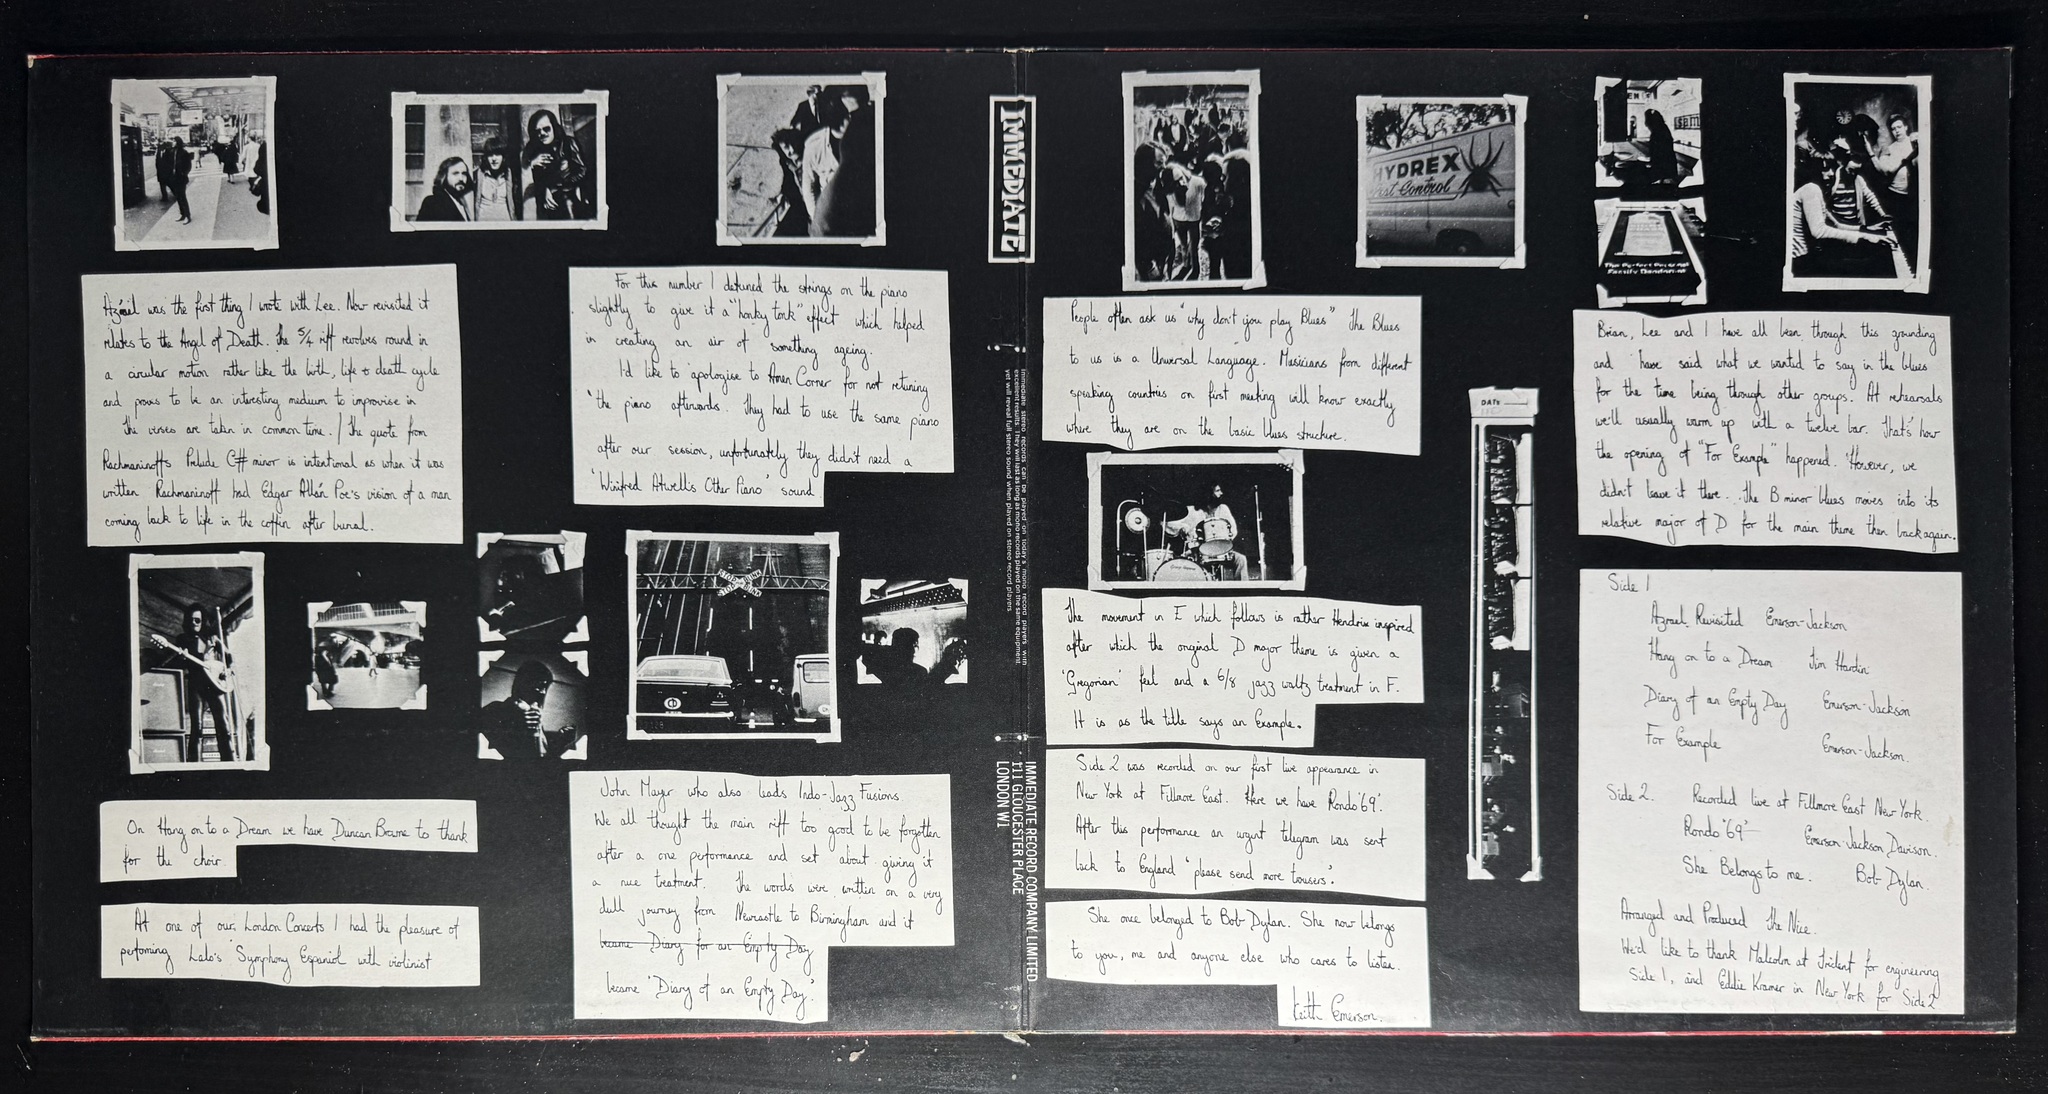 Azrael was the first thing I wrote with Lee. Now revisited it
relates to the Angel of Death. The 5/4 riff revolves round in
a circular motion rather like the birth, life & death cycle
and proves to be an interesting medium to improvise in
The verses are taken in common time. / The quote from
Rachmaninoffs Prelude C# minor is intentional as when it was
written Rachmaninoff had Edgar Allan Poe's vision of a man
coming back to life in the coffin after burial.
On Hang on to a Dream we have Duncan Browne to thank
for the choir.
At one of our London Concerts I had the pleasure of
performing Lalo's Symphony Espaniol with violinist
For this number I detuned the strings on the piano
slightly to give it a "honky tonk" effect which helped
in creating an air of something ageing.
I'd like to apologise to Amen Corner for not retuning
the piano afterwards. They had to use the same piano
after our session, unfortunately they didn't need a
'Winifred Atwell's Other Piano' sound
RAILROAD CROSSING
John Mayer who also leads Indo-Jazz Fusions.
We all thought the main riff too good to be forgotten
after a one performance and set about giving it
a nice treatment. The words were written on a very
dull journey from Newcastle to Birmingham and it
became Diary for an Empty Day
became 'Diary of an Empty Day'.
IMMEDIATE
Immediate stereo records can be played on today's mono record players with
excellent results. They will last as long as mono records played on the same equipment,
yet will reveal full stereo sound when played on stereo record players.
IMMEDIATE RECORD COMPANY LIMITED
111 GLOUCESTER PLACE
LONDON W1
HYDREX
Pest Control
People often ask us "why don't you play Blues" The Blues
to us is a Universal Language. Musicians from different
speaking countries on first meeting will know exactly
where they are on the basic blues structure.
The movement in E which follows is rather Hendrix inspired
after which the original D major theme is given a
'Gregorian' feel and a 6/8 jazz waltz treatment in F.
It is as the title says an Example.
Side 2 was recorded on our first live appearance in
New York at Fillmore East. Here we have Rondo '69'.
After this performance an urgent telegram was sent
back to England 'please send more trousers'.
She once belonged to Bob Dylan. She now belongs
to you, me and anyone else who cares to listen.
Keith Emerson.
DATE
The Perfect Personal
Family Handprint
Brian, Lee and I have all been through this grounding
and have said what we wanted to say in the blues
for the time being through other groups. At rehearsals
we'll usually warm up with a twelve bar. That's how
the opening of "For Example" happened. However, we
didn't leave it there. The B minor blues moves into its
relative major of D for the main theme then back again.
Side 1
Azrael Revisited Emerson-Jackson
Hang on to a Dream Tim Hardin
Diary of an Empty Day Emerson-Jackson
For Example Emerson-Jackson.
Side 2. Recorded live at Fillmore East New York.
Rondo '69' Emerson Jackson Davison.
She Belongs to me. Bob Dylan.
Arranged and Produced The Nice.
We'd like to thank Malcolm at Trident for engineering
Side 1, and Eddie Kramer in New York for Side 2